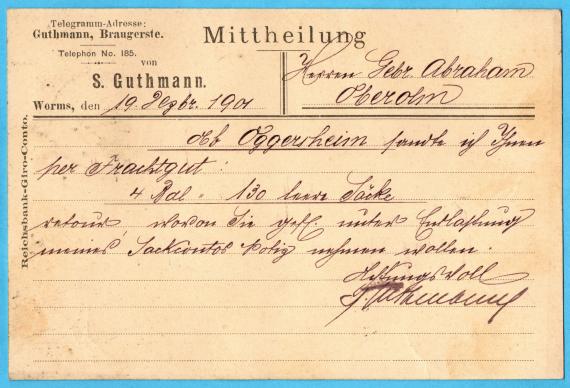 Telegramm-Adresse:
Guthmann, Braugerste.
Telephon No. 185.
Mittheilung
von
S. Guthmann.
Herren Gebr. Abraham
Oberolm
Worms, den 19. Dezbr. 1901
Reichsbank-Giro-Conto.
Ab Oggersheim sandte ich Ihnen
per Frachtgut:
4 Bal = 130 leere Säcke
retour, wovon Sie gefl. unter Entlastung
meines Sackcontos Notiz nehmen wollen.
Achtungsvoll
S. Guthmann